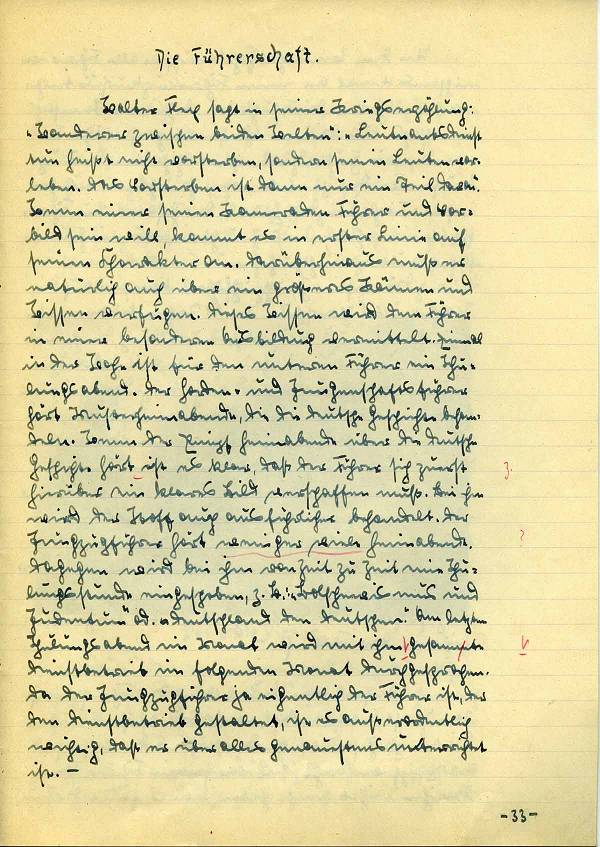 Die Führerschaft.
Walter Flex sagt in seiner Kriegserzählung:
„Wanderer zwischen beiden Welten": „Leutnantsdienst
tun heißt nicht vorsterben, sondern seinen Leuten vor-
leben. Das Vorsterben ist dann nur ein Teil davon.
Wenn einer seinen Kameraden Führer und Vor-
bild sein will, kommt es in erster Linie auf
seinen Charakter an. Darüberhinaus muß er
natürlich auch über ein größeres Können und
Wissen verfügen. Dieses Wissen wird dem Führer
in einer besonderen Ausbildung vermittelt. Einmal
in der Woche ist für den unteren Führer ein Schu-
lungsabend. Der Horden- und Jungenschaftsführer
hört Musterheimabende, die die deutsche Geschichte behan-
deln. Wenn der Pimpf Heimabende über die deutsche
Geschichte hört ist es klar, daß der Führer sich zuerst
3.
hierüber ein klares Bild verschaffen muß. Bei ihm
wird der Stoff auch ausführlicher behandelt. Der
Jungzugführer hört weniger viele Heimabende.
?
Dagegen wird bei ihm von Zeit zu Zeit eine Schu-
lungsstunde eingeschoben, z. B.: „Bolschewismus und
Judentum" od. „Deutschland den Deutschen". Am letzten
Schulungsabend im Monat wird mit ihm gesamte
Dienstbetrieb im folgenden Monat durchgesprochen.
Da der Jungzugführer ja eigentlich der Führer ist, der
den Dienstbetrieb gestaltet, ist es außerordentlich
wichtig, daß er über alles genauestens unterrichtet
ist. –
-33-